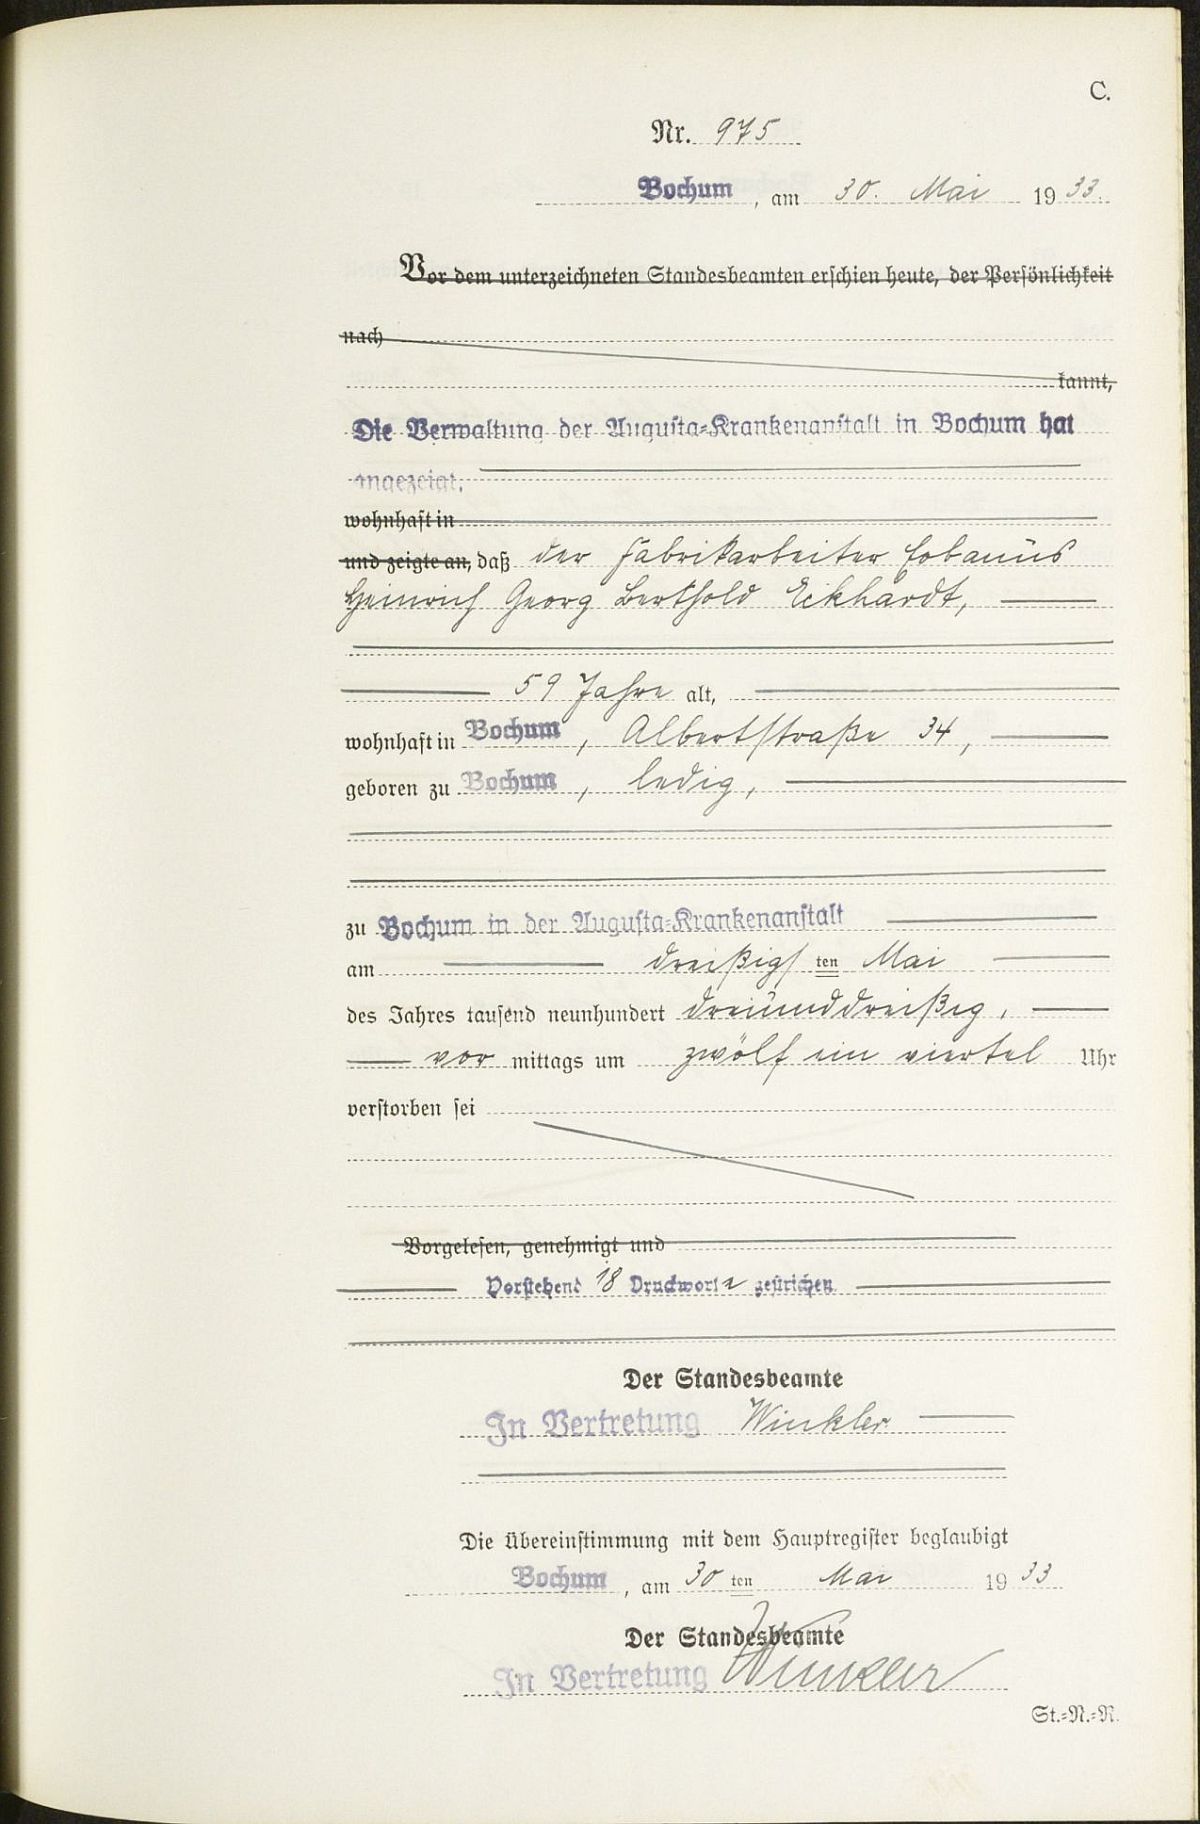 C.
Nr. 975
Bochum, am 30. Mai 1933.
Vor dem unterzeichneten Standesbeamten erschien heute, der Persönlichkeit
nach
kannt,
Die Verwaltung der Augusta-Krankenanstalt in Bochum hat
angezeigt,
wohnhaft in
und zeigte an, daß der Fabrikarbeiter Eobanus
Heinrich Georg Berthold Eckhardt,
59 Jahre alt,
wohnhaft in Bochum, Albertstraße 34,
geboren zu Bochum, ledig,
zu Bochum in der Augusta-Krankenanstalt
am dreißigsten Mai
des Jahres tausend neunhundert dreiunddreißig,
vor mittags um zwölf ein viertel Uhr
verstorben sei
Vorgelesen, genehmigt und
Vorstehend 18 Druckworte gestrichen.
Der Standesbeamte
In Vertretung Winkler.
Die Übereinstimmung mit dem Hauptregister beglaubigt
Bochum, am 30 ten Mai 1933
Der Standesbeamte
In Vertretung Winkler
St.-N.-R.